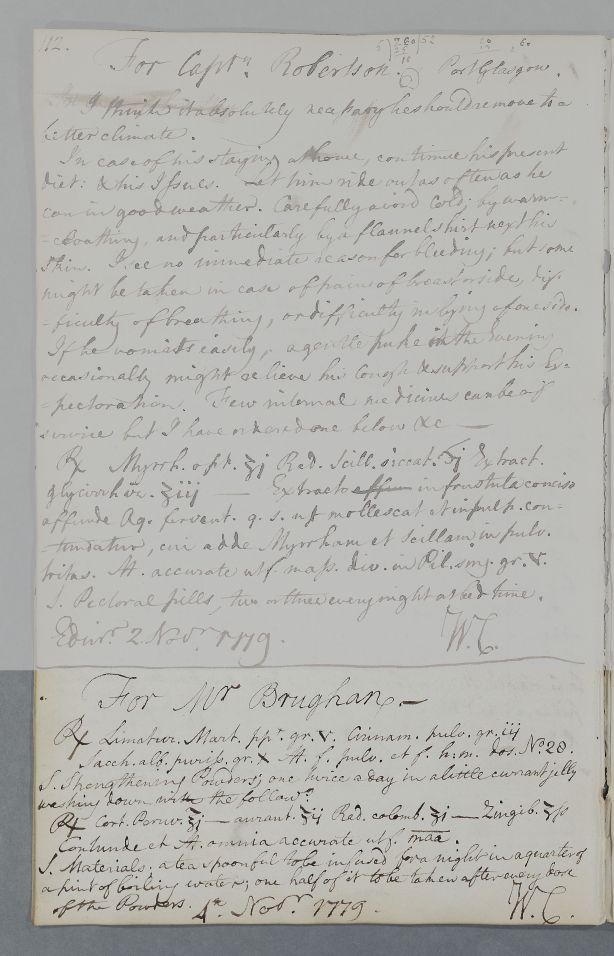 112.
For Captn. Robertson. Port Glasgow.
I think it absolutely necessary he should remove to a
better climate.
In case of his staying at home, continue his present
diet: & his Issues. Let him ride out as often as he
can in good weather. Carefully avoid cold; by warm-
-cloathing, and particularly by a flannel shirt next his
Skin. I see no immediate reason for bleeding; but some
might be taken in case of pain of breast or side, dif-
-ficulty of breathing, or difficulty in lying of one side.
If he vomits easily, a gentle puke in the Evening
occasionally might relieve his Cough & support his Ex-
-pectoration. Few internal medicines can be of
service but I have ordered one below &c —
℞ Myrrh. opt. ʒj Rad. Scill. siccat. ℈j Extract.
glycirrhiz. ʒiij — Extracto in frustula conciso
affunde Aq. fervent. q. s. ut mollescat et in pulp. con-
-tundatur, cui adde Myrrham et Scillam in pulv.
tritas. M. accurate ut f. mass. div. in Pil. sing. gr. v.
S. Pectoral pills, two or three every night at bed time.
Edinr. 2 Novr. 1779. W.C.
For Mr Brughan. —
℞ Limatur. Mart. ppt. gr. v. Cinnam. pulv. gr. iij
Sacch. alb. puriss. gr. x M. f. pulv. et f. h. m. dos. No. 20.
S. Strengthening Powders; one twice a day in a little currant jelly
washing down with the follow.
℞ Cort. Peruv. ℥j — aurant. ʒij Rad. colomb. ʒj — Zingib. ʒss
Contunde et M. omnia accurate ut f. maa.
S. Materials. a tea spoonful to be infused for a night in a quarter of
a pint of boiling water; one half of it to be taken after every dose
of the Powders. 4th. Novr. 1779. W.C.